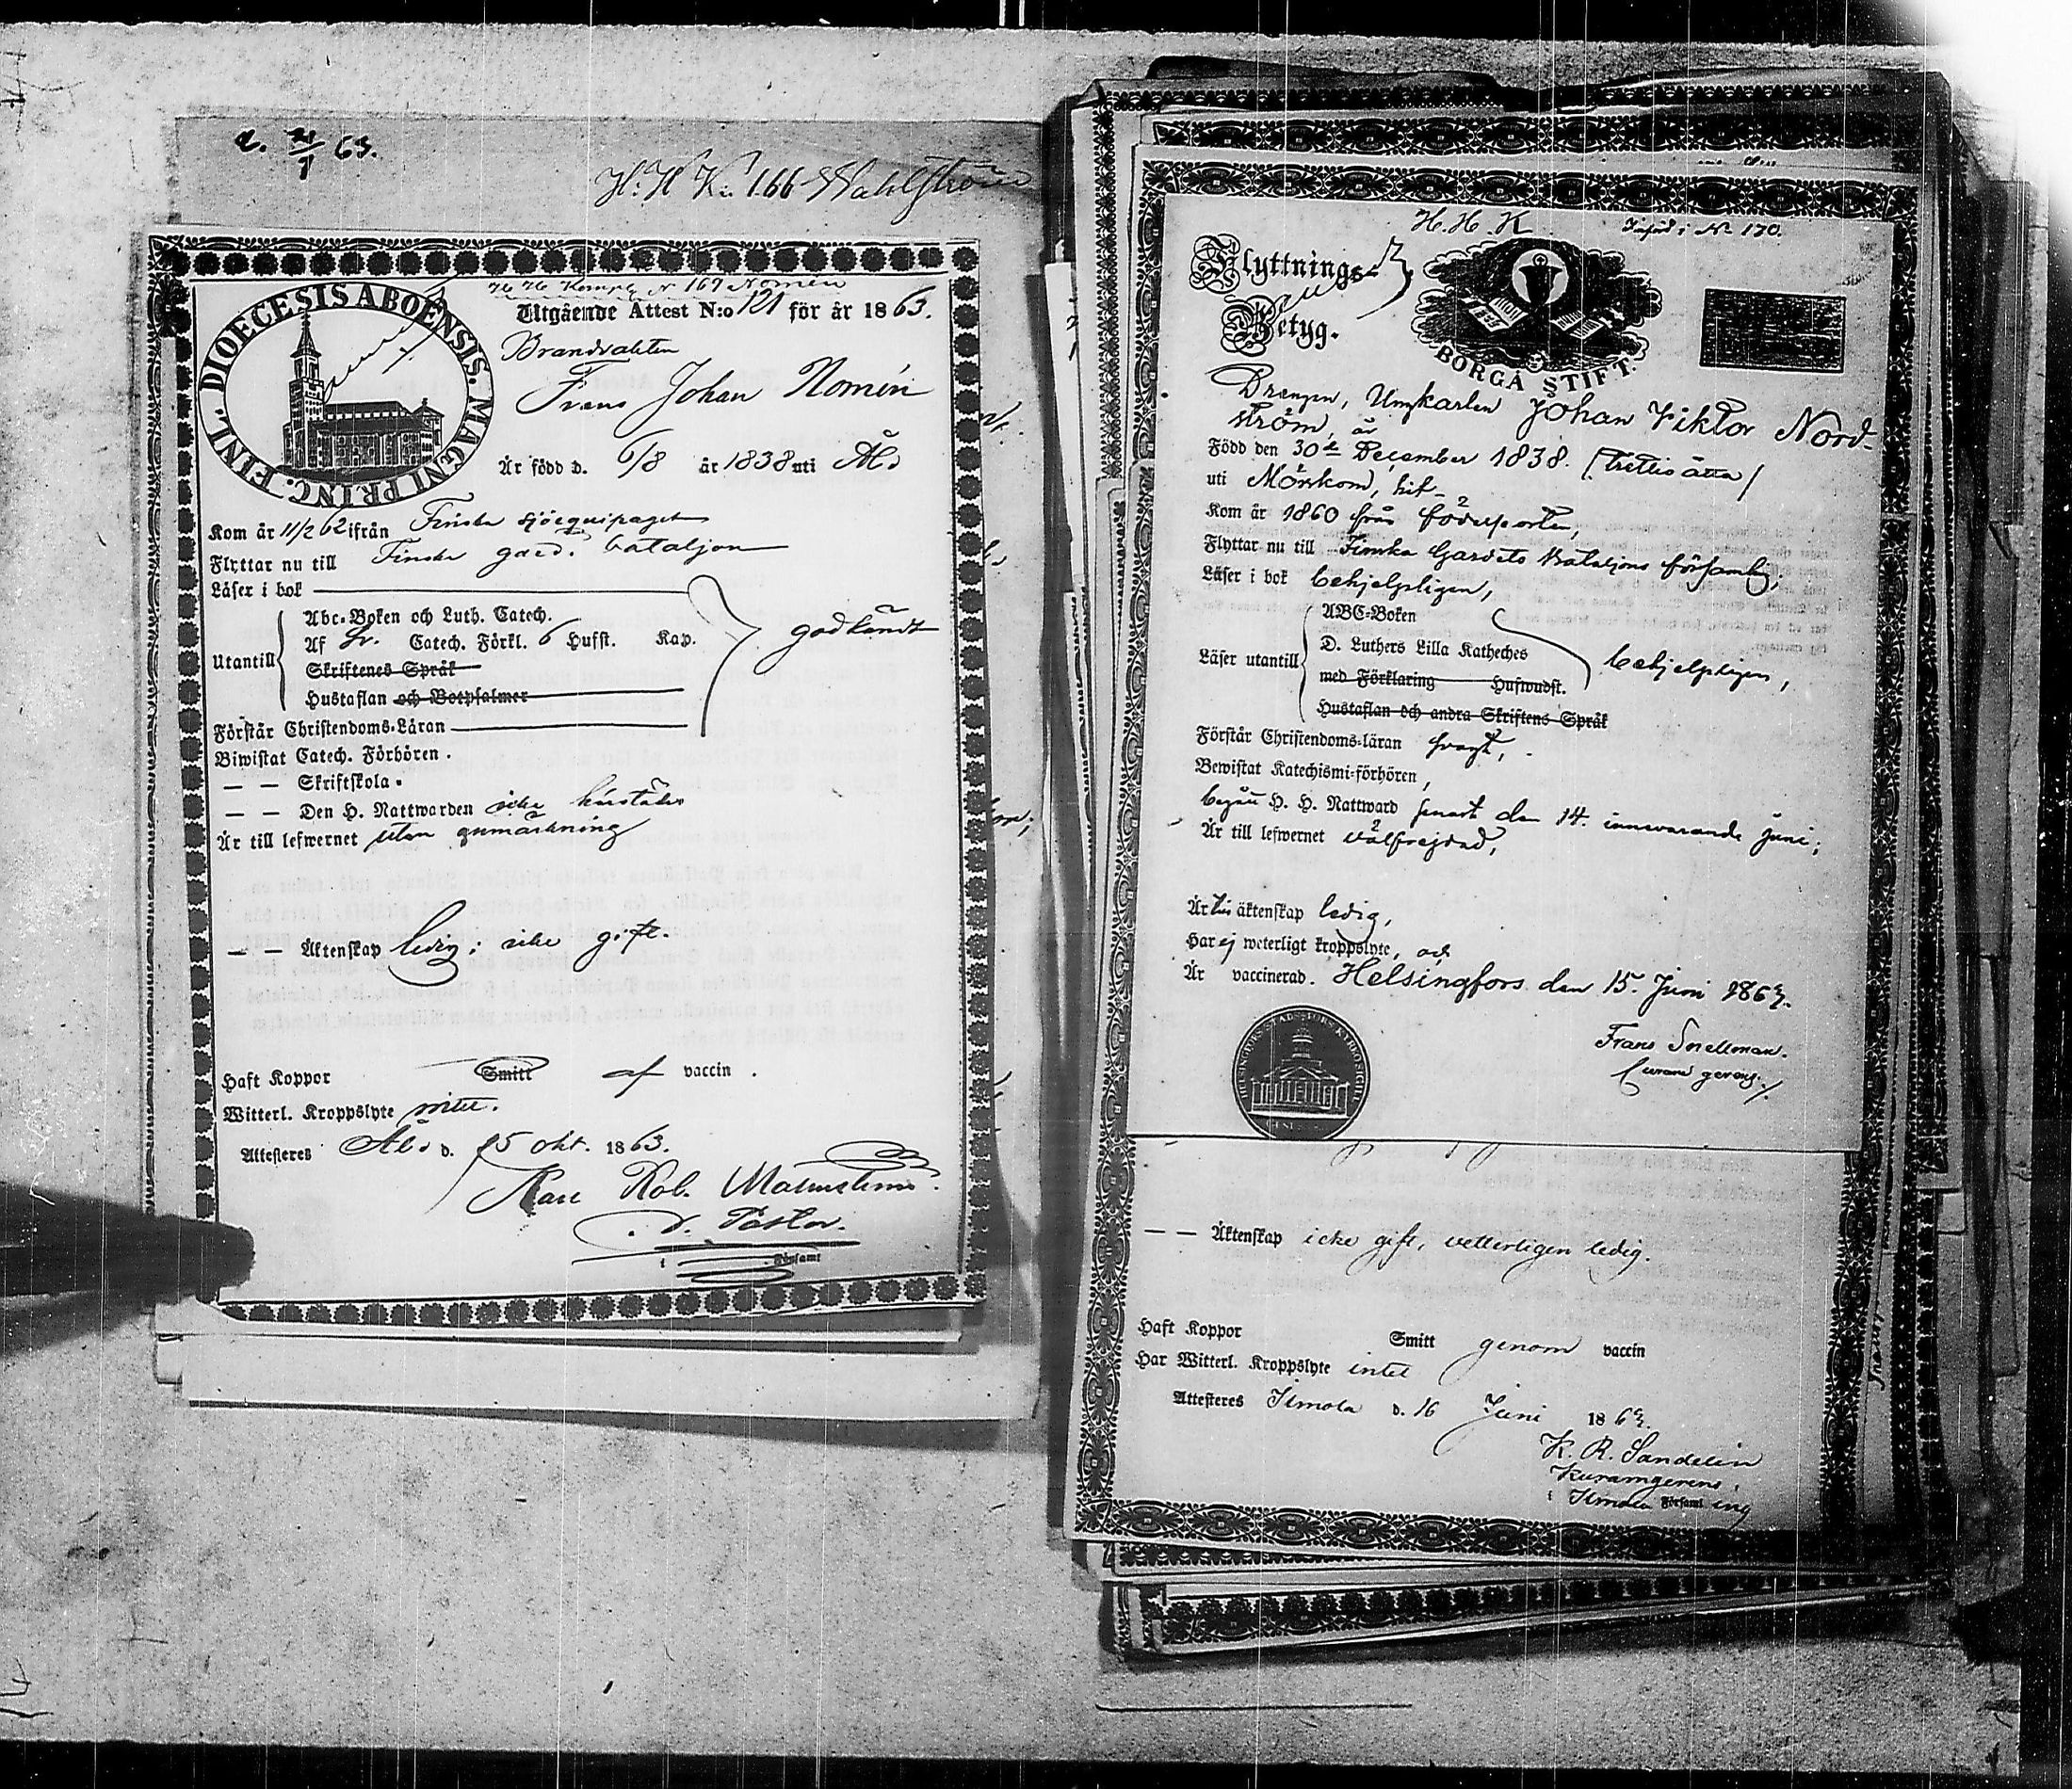 63.
H. H. K. 166 Wahlström
DIOECESIS ABOËNSIS. MAGNI PRINC. FINL.
H H Komp. N 167 Nomén
Utgående Attest N:o 121 för år 1863.
Brandvakten
Frans Johan Nomén
Är född d. 6/8 år 1838 uti Åbo
Kom år 11/2 62 ifrån Finska sjöequipaget
Flyttar nu till Finska gard. bataljon
Läser i bok
Abc-Boken och Luth. Catech.
Utantill Af Catech. Förkl. 6 Hufst. Kap. godkändt
Skriftenes Språk
Hustaflan och Botpsalmer
Förstår Christendoms-Läran
Biwistat Catech. Förhören.
— — Skriftskola.
— — Den H. Nattwarden härstädes
Är till lefwernet utan anmärkning
— — Äktenskap ledig; icke gift.
Haft Koppor Smitt af vaccin.
Witterl. Kroppslyte intet.
Attesteres Åbo d. 25 Okt. 1863.
Rob.
v. Pastor.
i Församl
H. H. K. Införd i No 170.
Flyttnings-
Betyg.
BORGÅ STIFT.
Drängen, Ungkarlen Johan Viktor Nord-
ström, är
Född den 30de December 1838. /trettio åtta/
uti Mörskom, hit
Kom år 1860 från födelseorten,
Flyttar nu till Finska Gardets Bataljons församling;
Läser i bok behjelpligen,
ABC-Boken
Läser utantill D. Luthers Lilla Katheches behjelpligen,
med Förklaring Hufwudst.
Hustaflan och andra Skriftens Språk
Förstår Christendoms-läran svagt,
Bewistat Katechismi-förhören,
begått H. H. Nattward senast den 14. innevarande Juni;
Är till lefwernet välfrejdad,
Är till äktenskap ledig,
Har ej weterligt kroppslyte, och
Är vaccinerad. Helsingfors den 15. Juni 1863.
Frans Snellman.
Curam gerens.
— — Äktenskap icke gift, vetterligen ledig.
Haft Koppor Smitt genom vaccin
Har Witterl. Kroppslyte intet
Attesteres Ilmola d. 16 Juni 1863.
K. R. Sandelin
Kuramgerens,
i Ilmola Församl ing